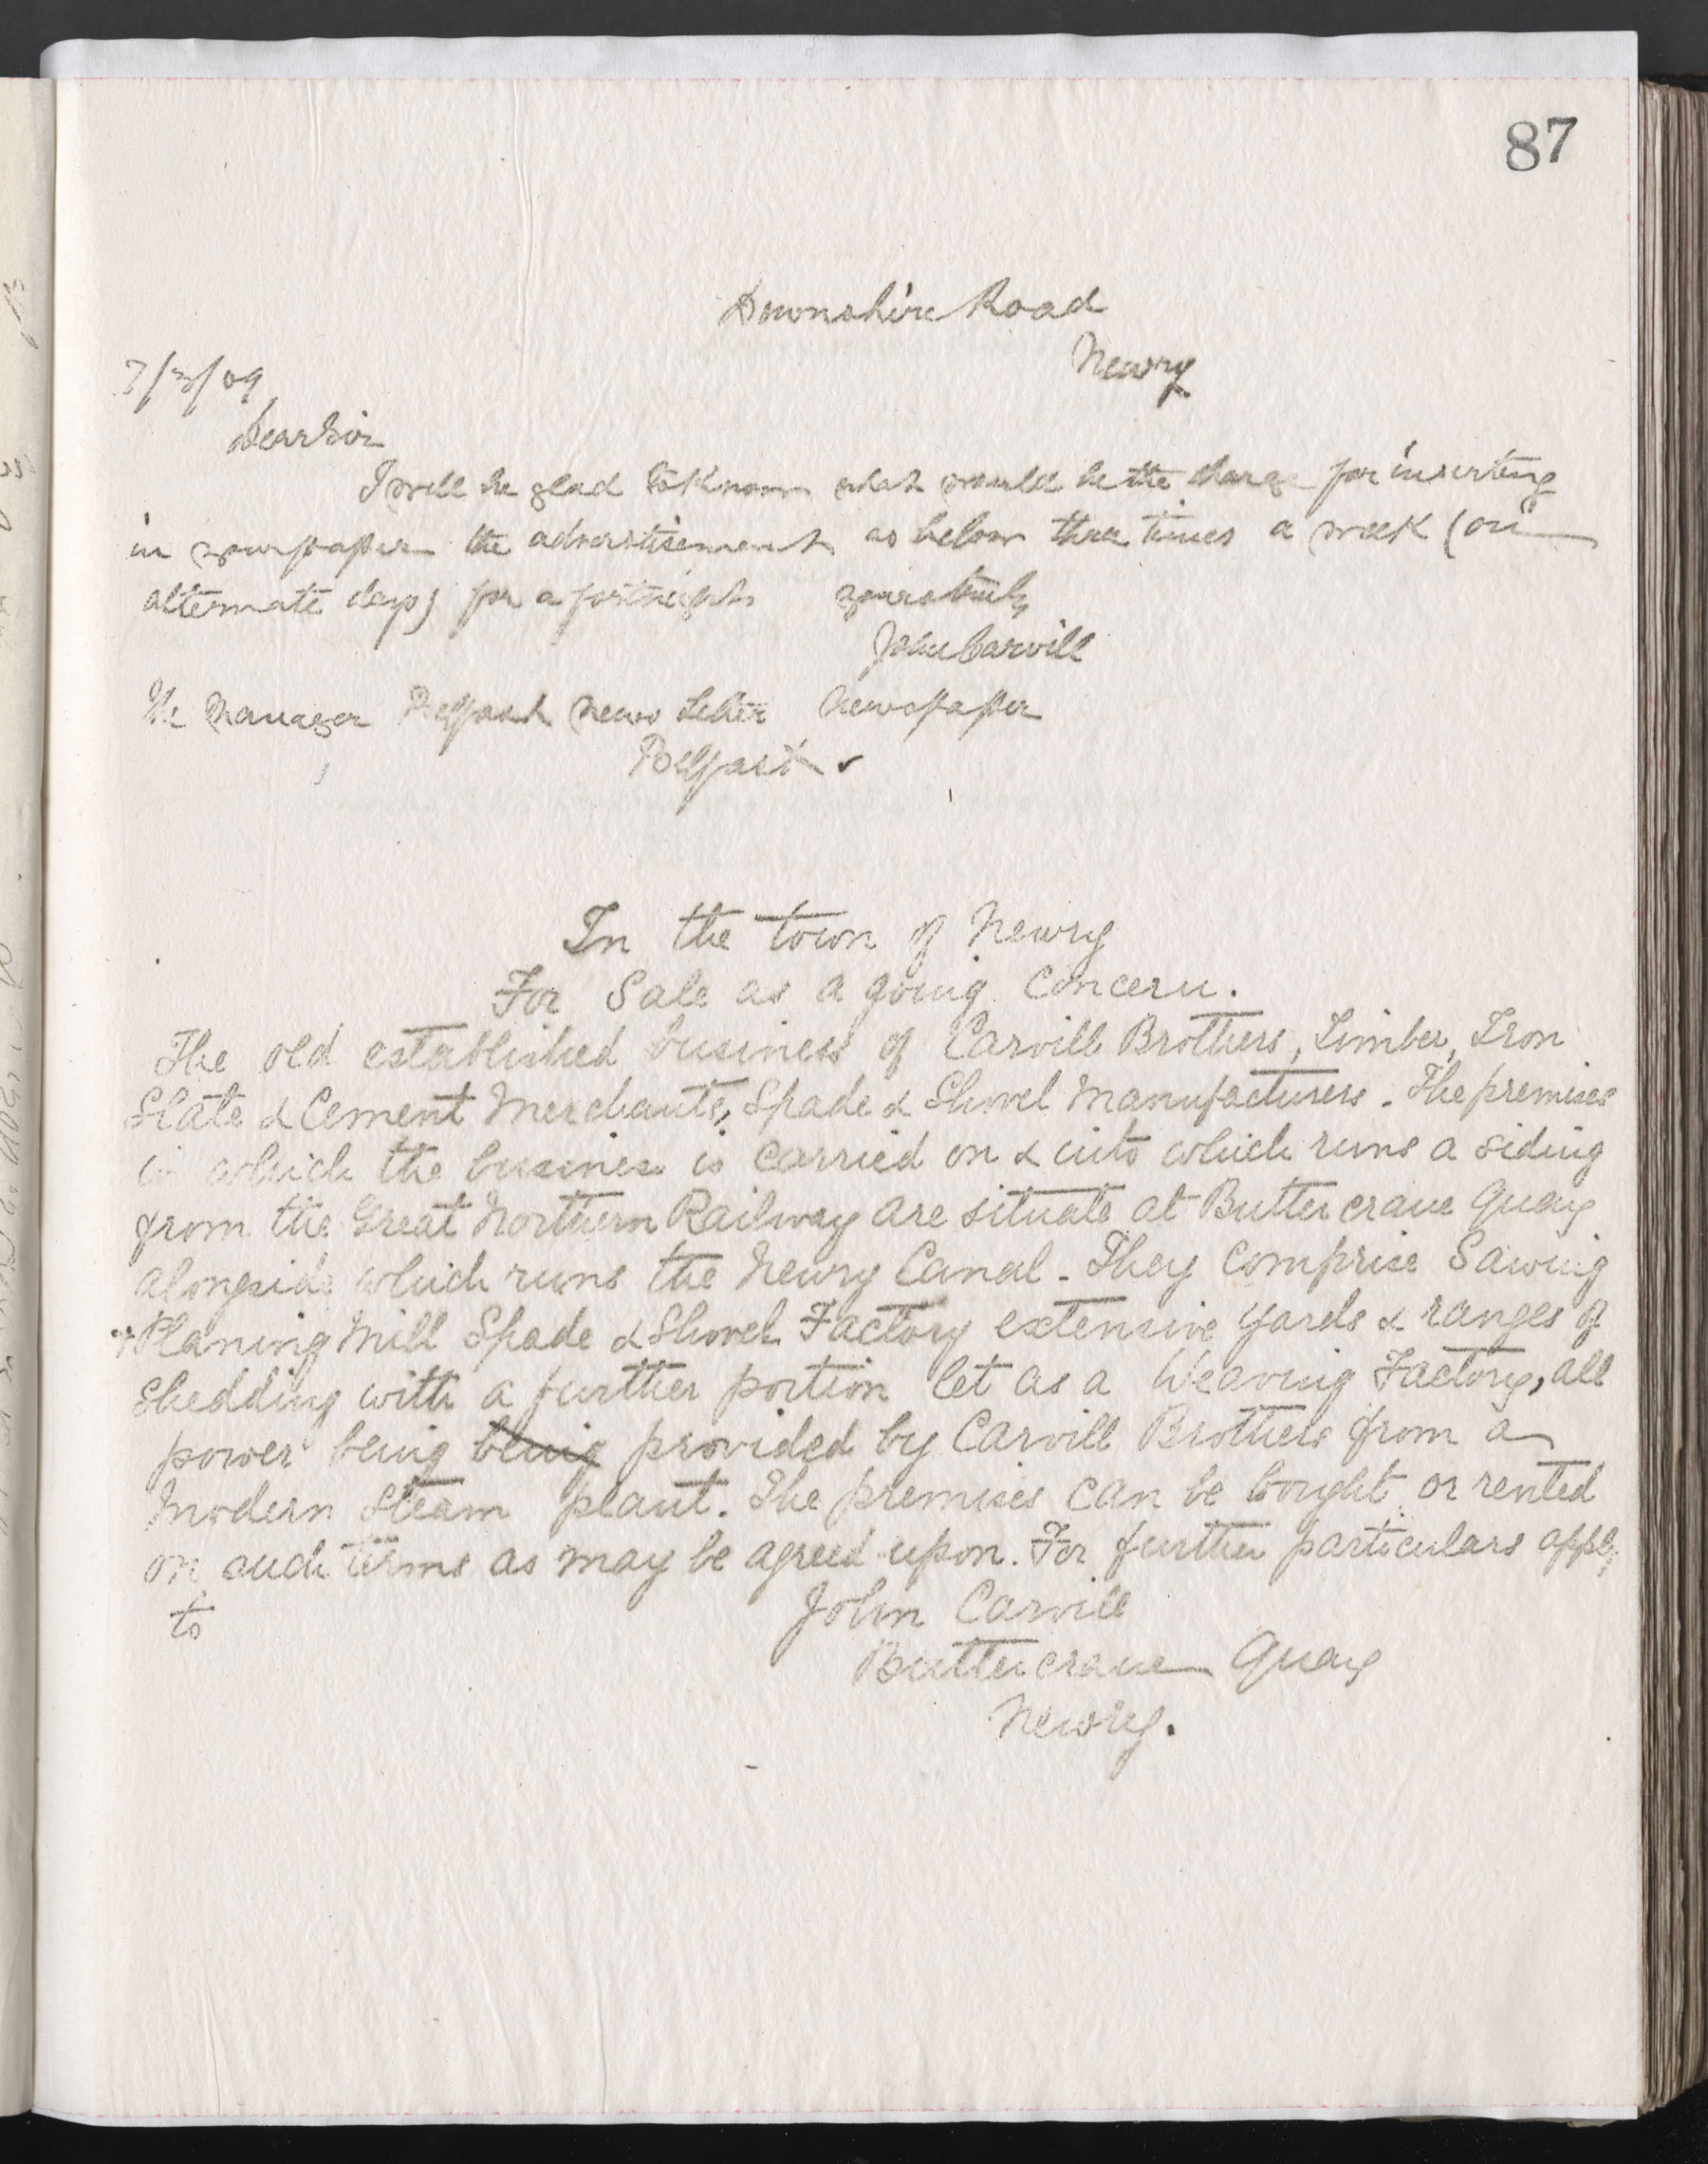 87
Downshire Road
Newry
7/3/09
Dear Sir
I will be glad to know what would be the charge for inserting
in your paper the advertisement as below three times a week (on
alternate days) for a fortnight yours truly
John Carvill
The Manager Belfast News Letter Newspaper
Belfast
In the town of Newry
For Sale as a going Concern.
The old established business of Carvill Brothers, Timber, Iron
Slate & Cement Merchants, Spade & Shovel Manufacturers. The premises
in which the business is carried on & into which runs a siding
from the Great Northern Railway are situate at Buttercrane Quay
alongside which runs the Newry Canal - They comprise Sawing
& Planing Mill Spade & Shovel Factory extensive yards & ranges of
shedding with a further portion let as a Weaving Factory, all
power being being provided by Carvill Brothers from a
modern steam plant. The premises can be bought or rented
on such terms as may be agreed upon. For further particulars apply
to
John Carvill
Buttercrane Quay
Newry.